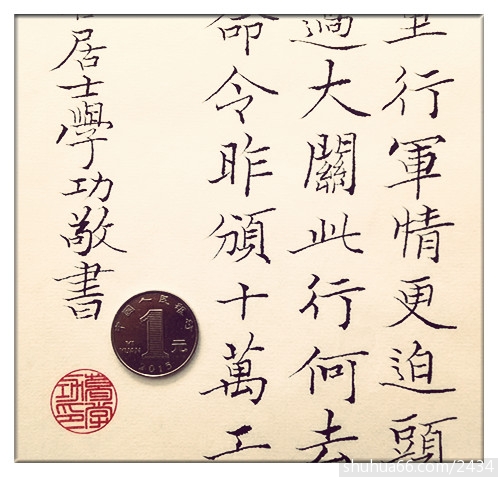 里行軍情更迫頭
過大關此行何去
命令昨頒十萬工
居士學功敬書
中国人民银行
1元
YI YUAN
2015
shuhua66.com/2434